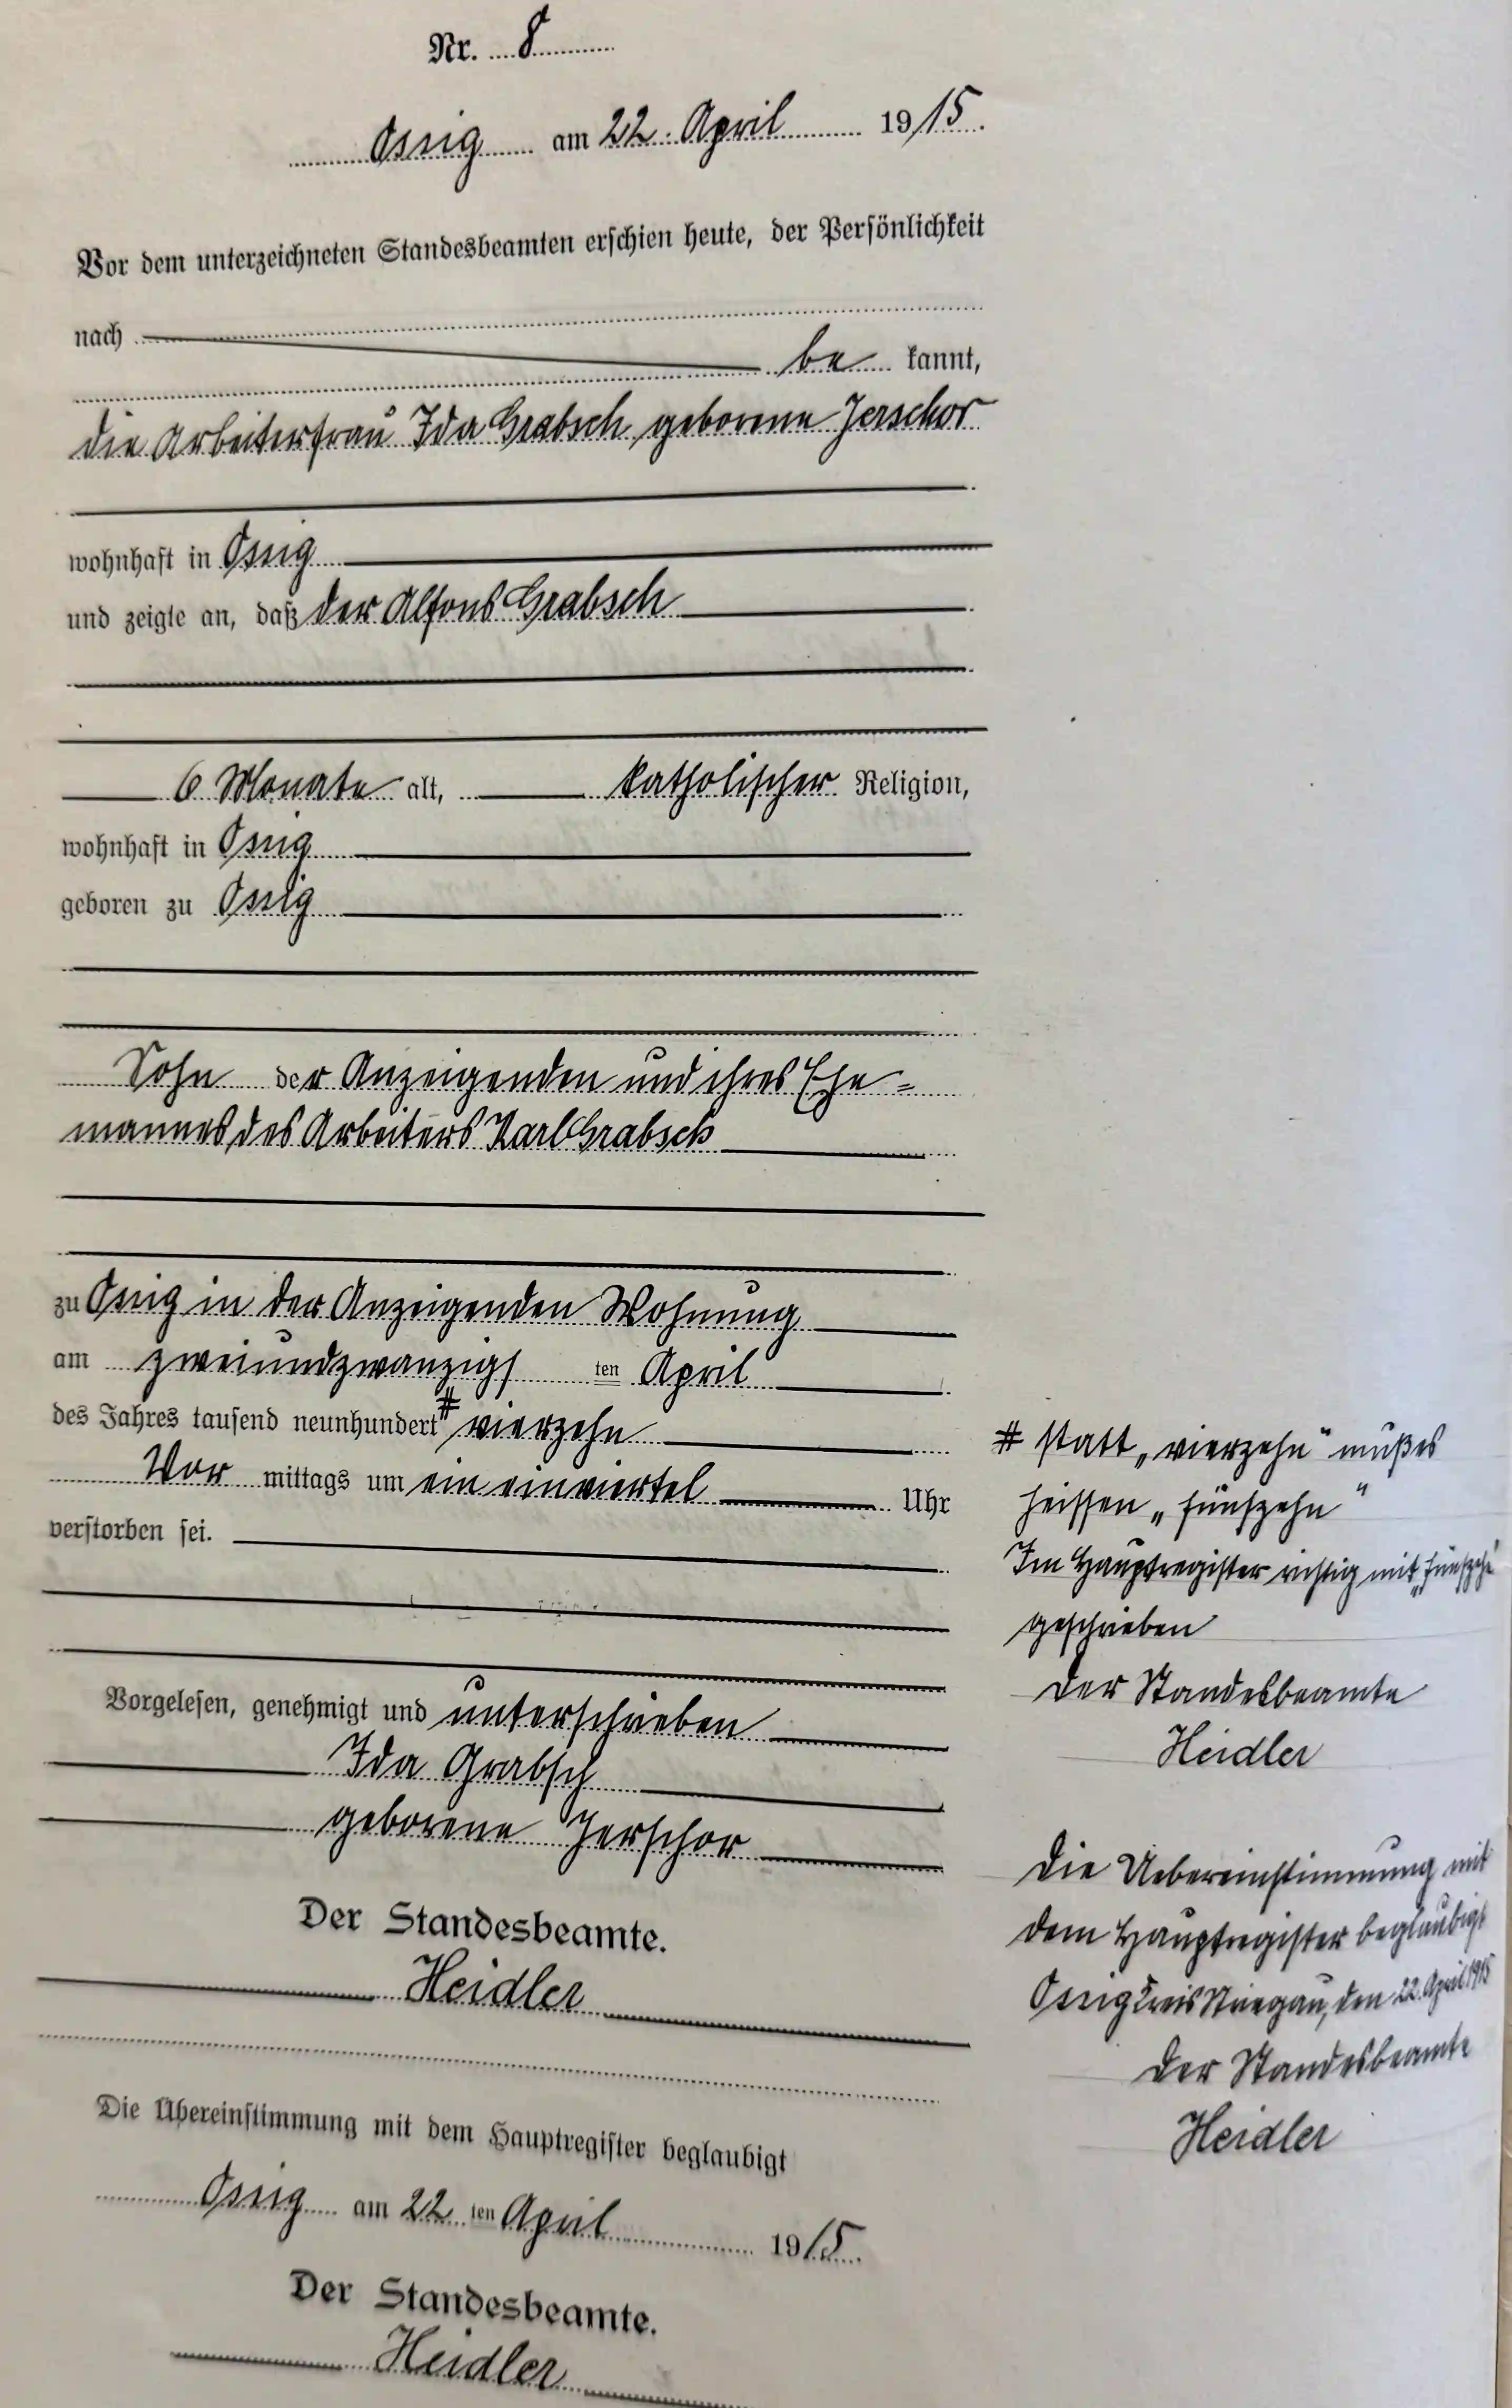 Nr. 8
Ossig am 22. April 1915.
Vor dem unterzeichneten Standesbeamten erschien heute, der Persönlichkeit
nach
be kannt,
die Arbeiterfrau Ida Grabsch geborene Jerschor
wohnhaft in Ossig
und zeigte an, daß der Alfons Grabsch
6 Monate alt, katholischer Religion,
wohnhaft in Ossig
geboren zu Ossig
Sohn der Anzeigenden und ihres Ehe=
mannes des Arbeiters Karl Grabsch
zu Ossig in der Anzeigenden Wohnung
am zweiundzwanzigs ten April
des Jahres tausend neunhundert # vierzehn
Vor mittags um ein einviertel Uhr
verstorben sei.
Vorgelesen, genehmigt und unterschrieben
Ida Grabsch
geborene Jerschor
Der Standesbeamte.
Heidler
Die Übereinstimmung mit dem Hauptregister beglaubigt
Ossig am 22 ten April 1915.
Der Standesbeamte.
Heidler
# statt „vierzehn" muß es
heissen „fünfzehn"
Im Hauptregister richtig mit „fünfzehn"
geschrieben
Der Standesbeamte
Heidler
Die Uebereinstimmung mit
dem Hauptregister beglaubigt
Ossig Kreis Striegau, den 22. April 1915
Der Standesbeamte
Heidler